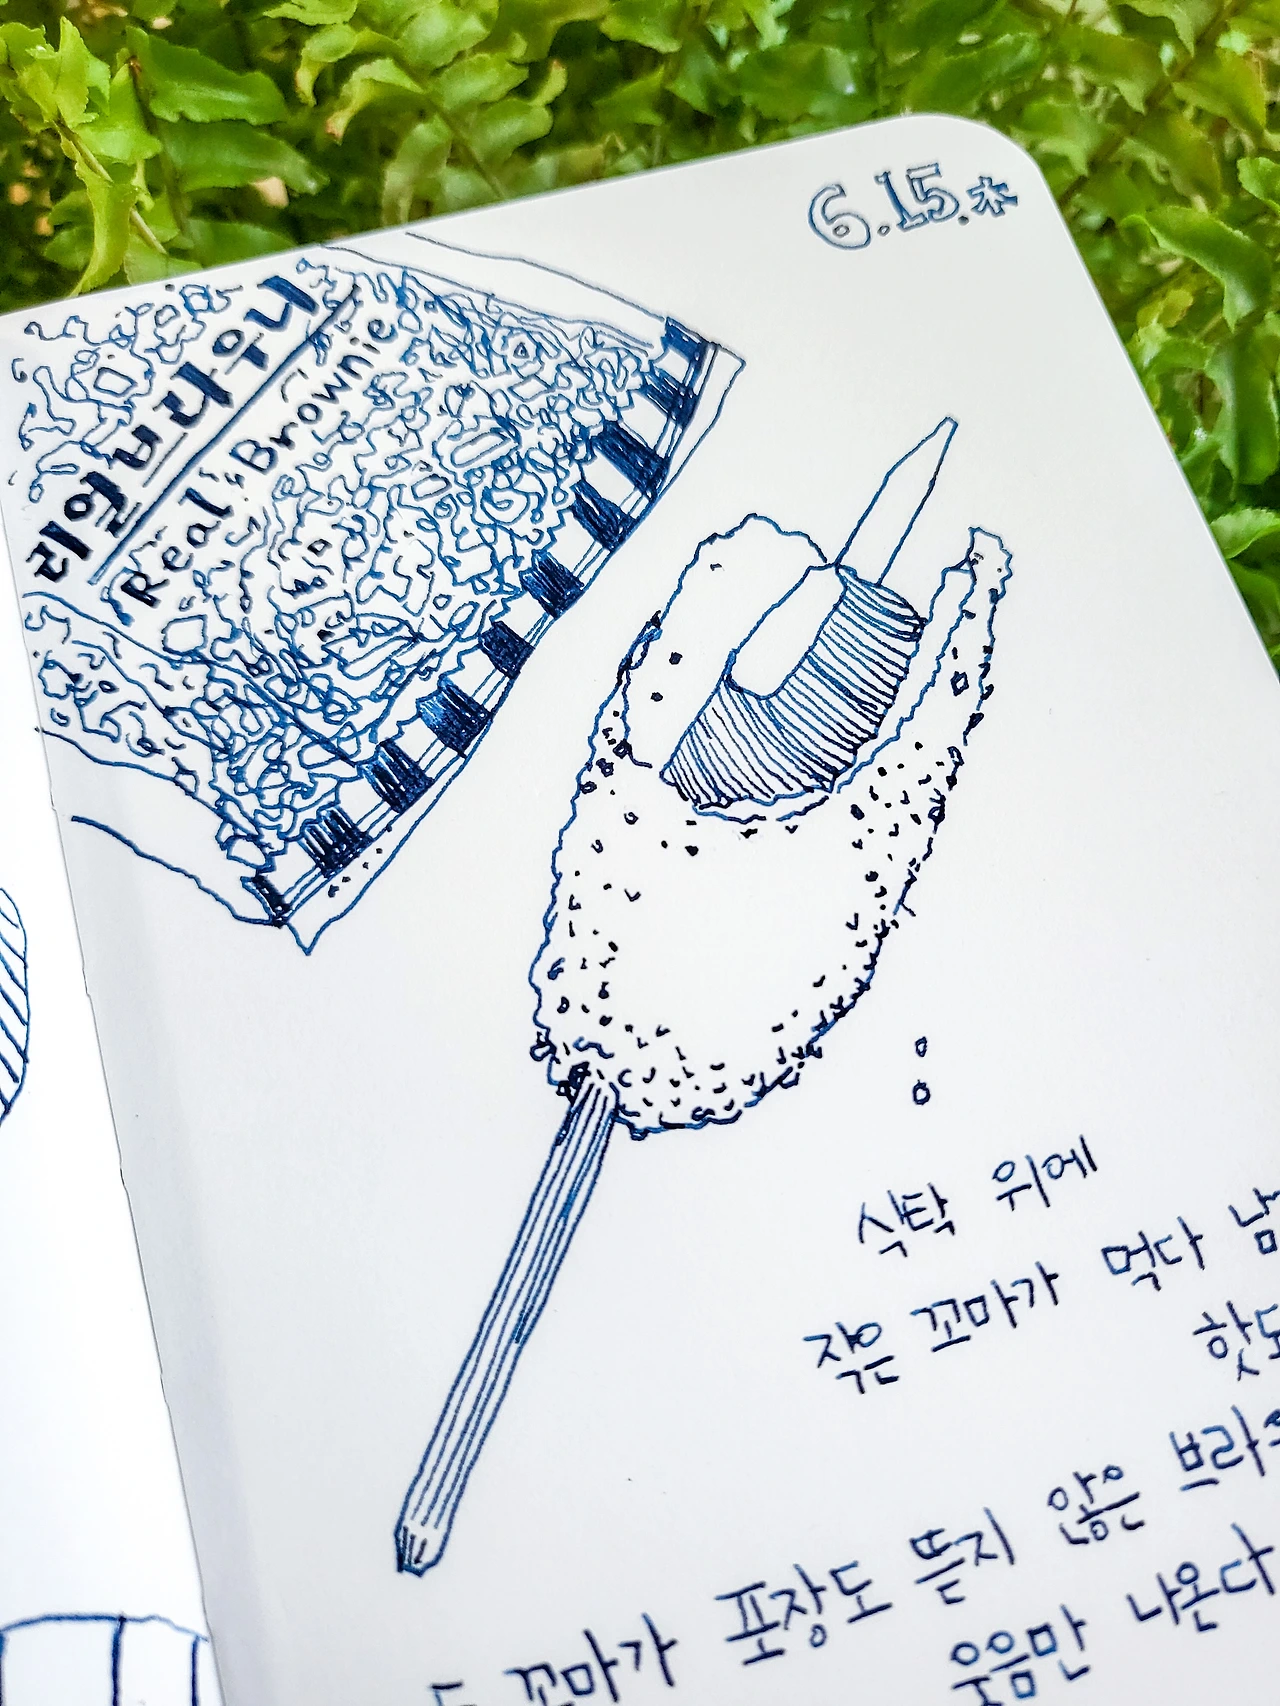 6.15.水
리얼브라우니
Real Brownie
식탁 위에
작은 꼬마가 먹다
포장도 뜯지 않은
꼬마가
웃음만 나온다